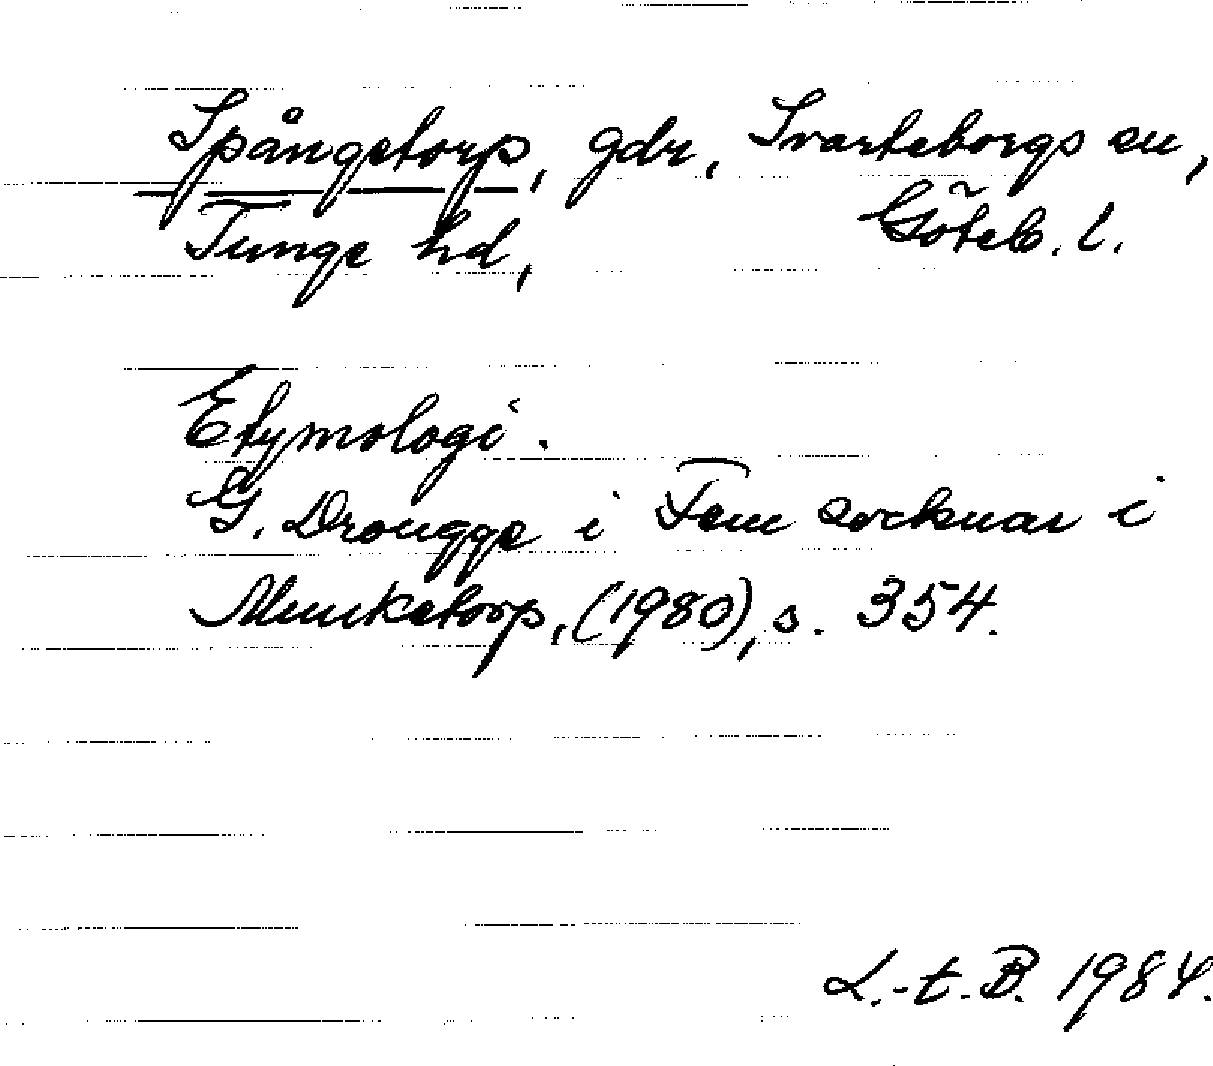 Spångetorp, gdr, Svarteborgs sn,
Tunge hd, Göteb. l.
Etymologi.
G. Drougge i Fem socknar i
Munketorp, (1980), s. 354.
L.-t. B. 1984.